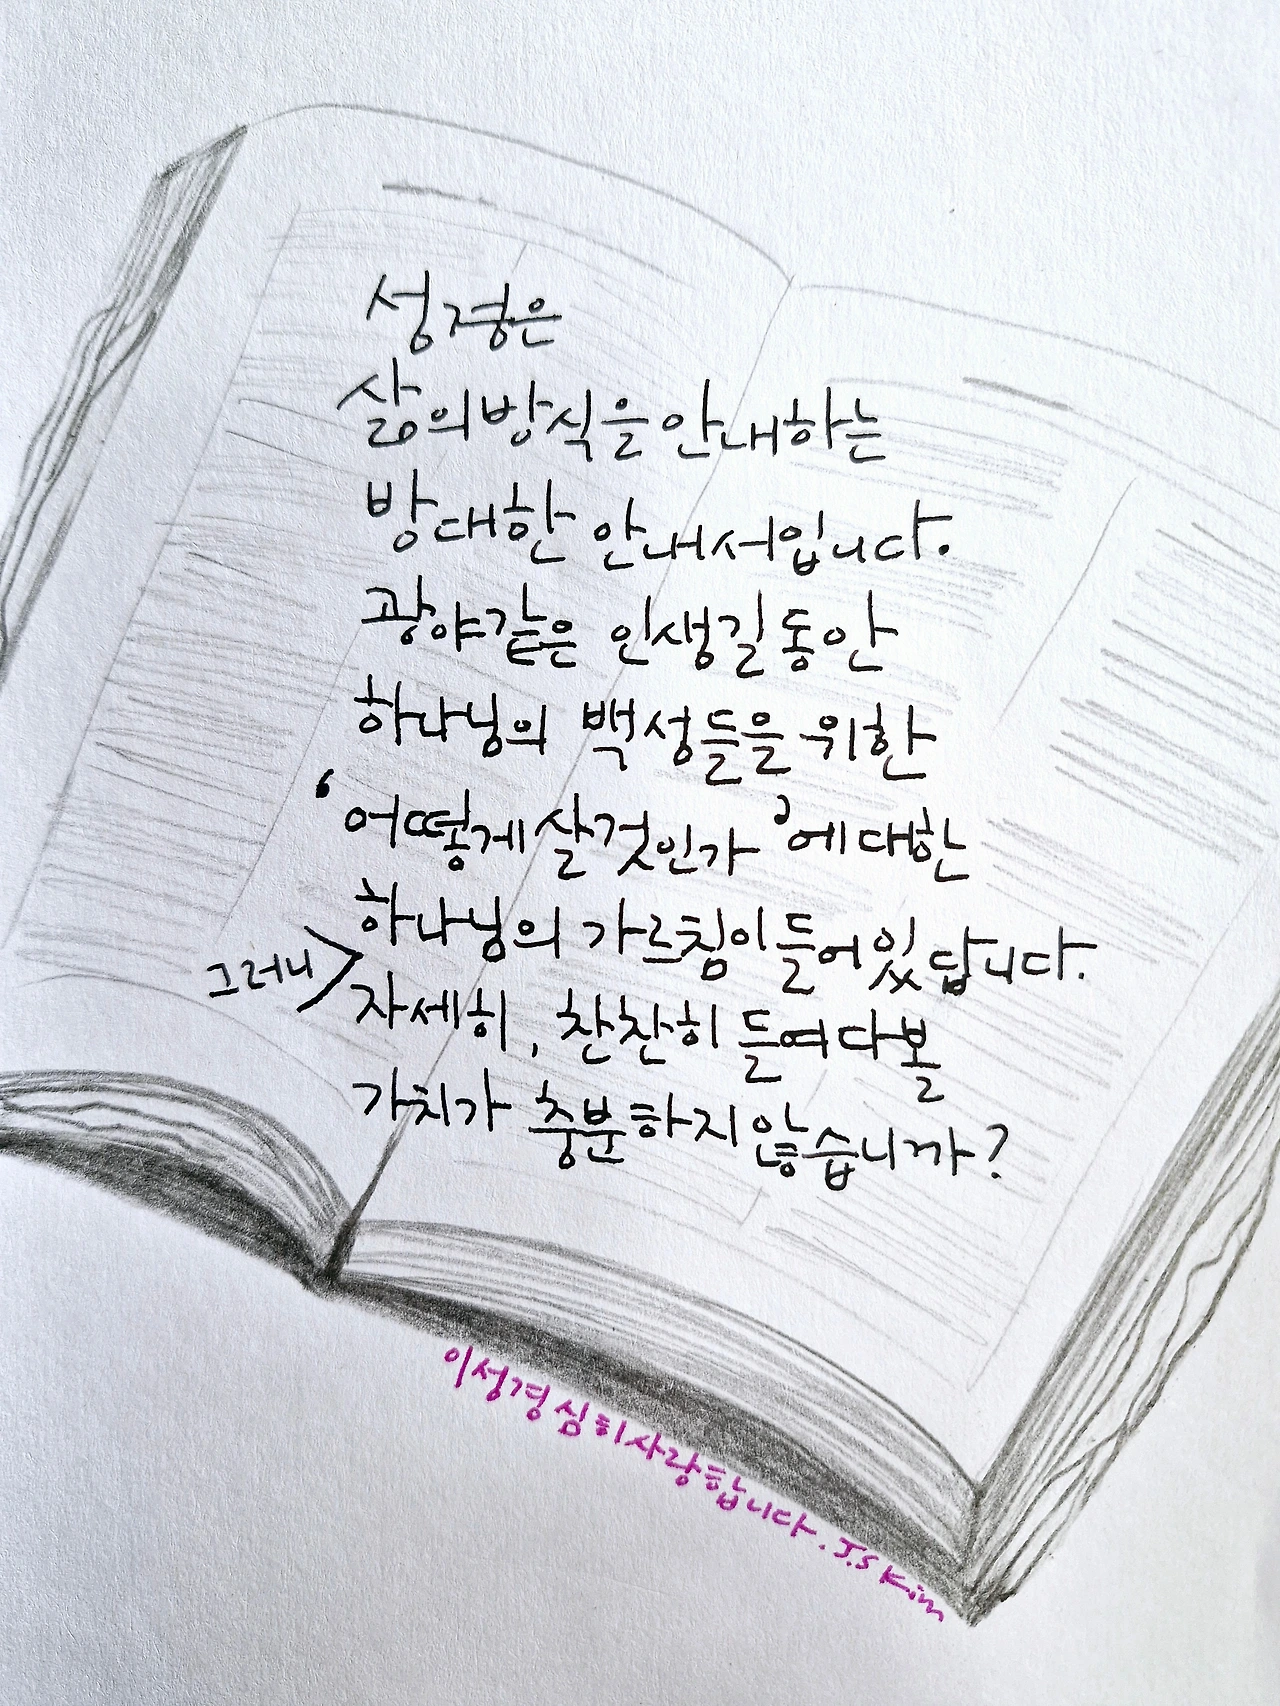 성경은
삶의 방식을 안내하는
방대한 안내서입니다.
광야같은 인생길 동안
하나님의 백성들을 위한
'어떻게 살것인가'에 대한
하나님의 가르침이 들어있답니다.
그러니
자세히, 찬찬히 들여다볼
가치가 충분하지 않습니까?
이 성경 심히 사랑합니다. J.S Kim